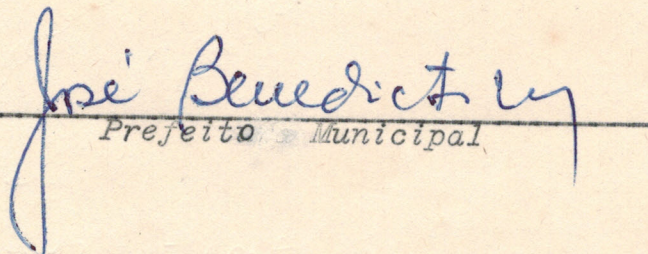 José Benedicto
Prefeito Municipal